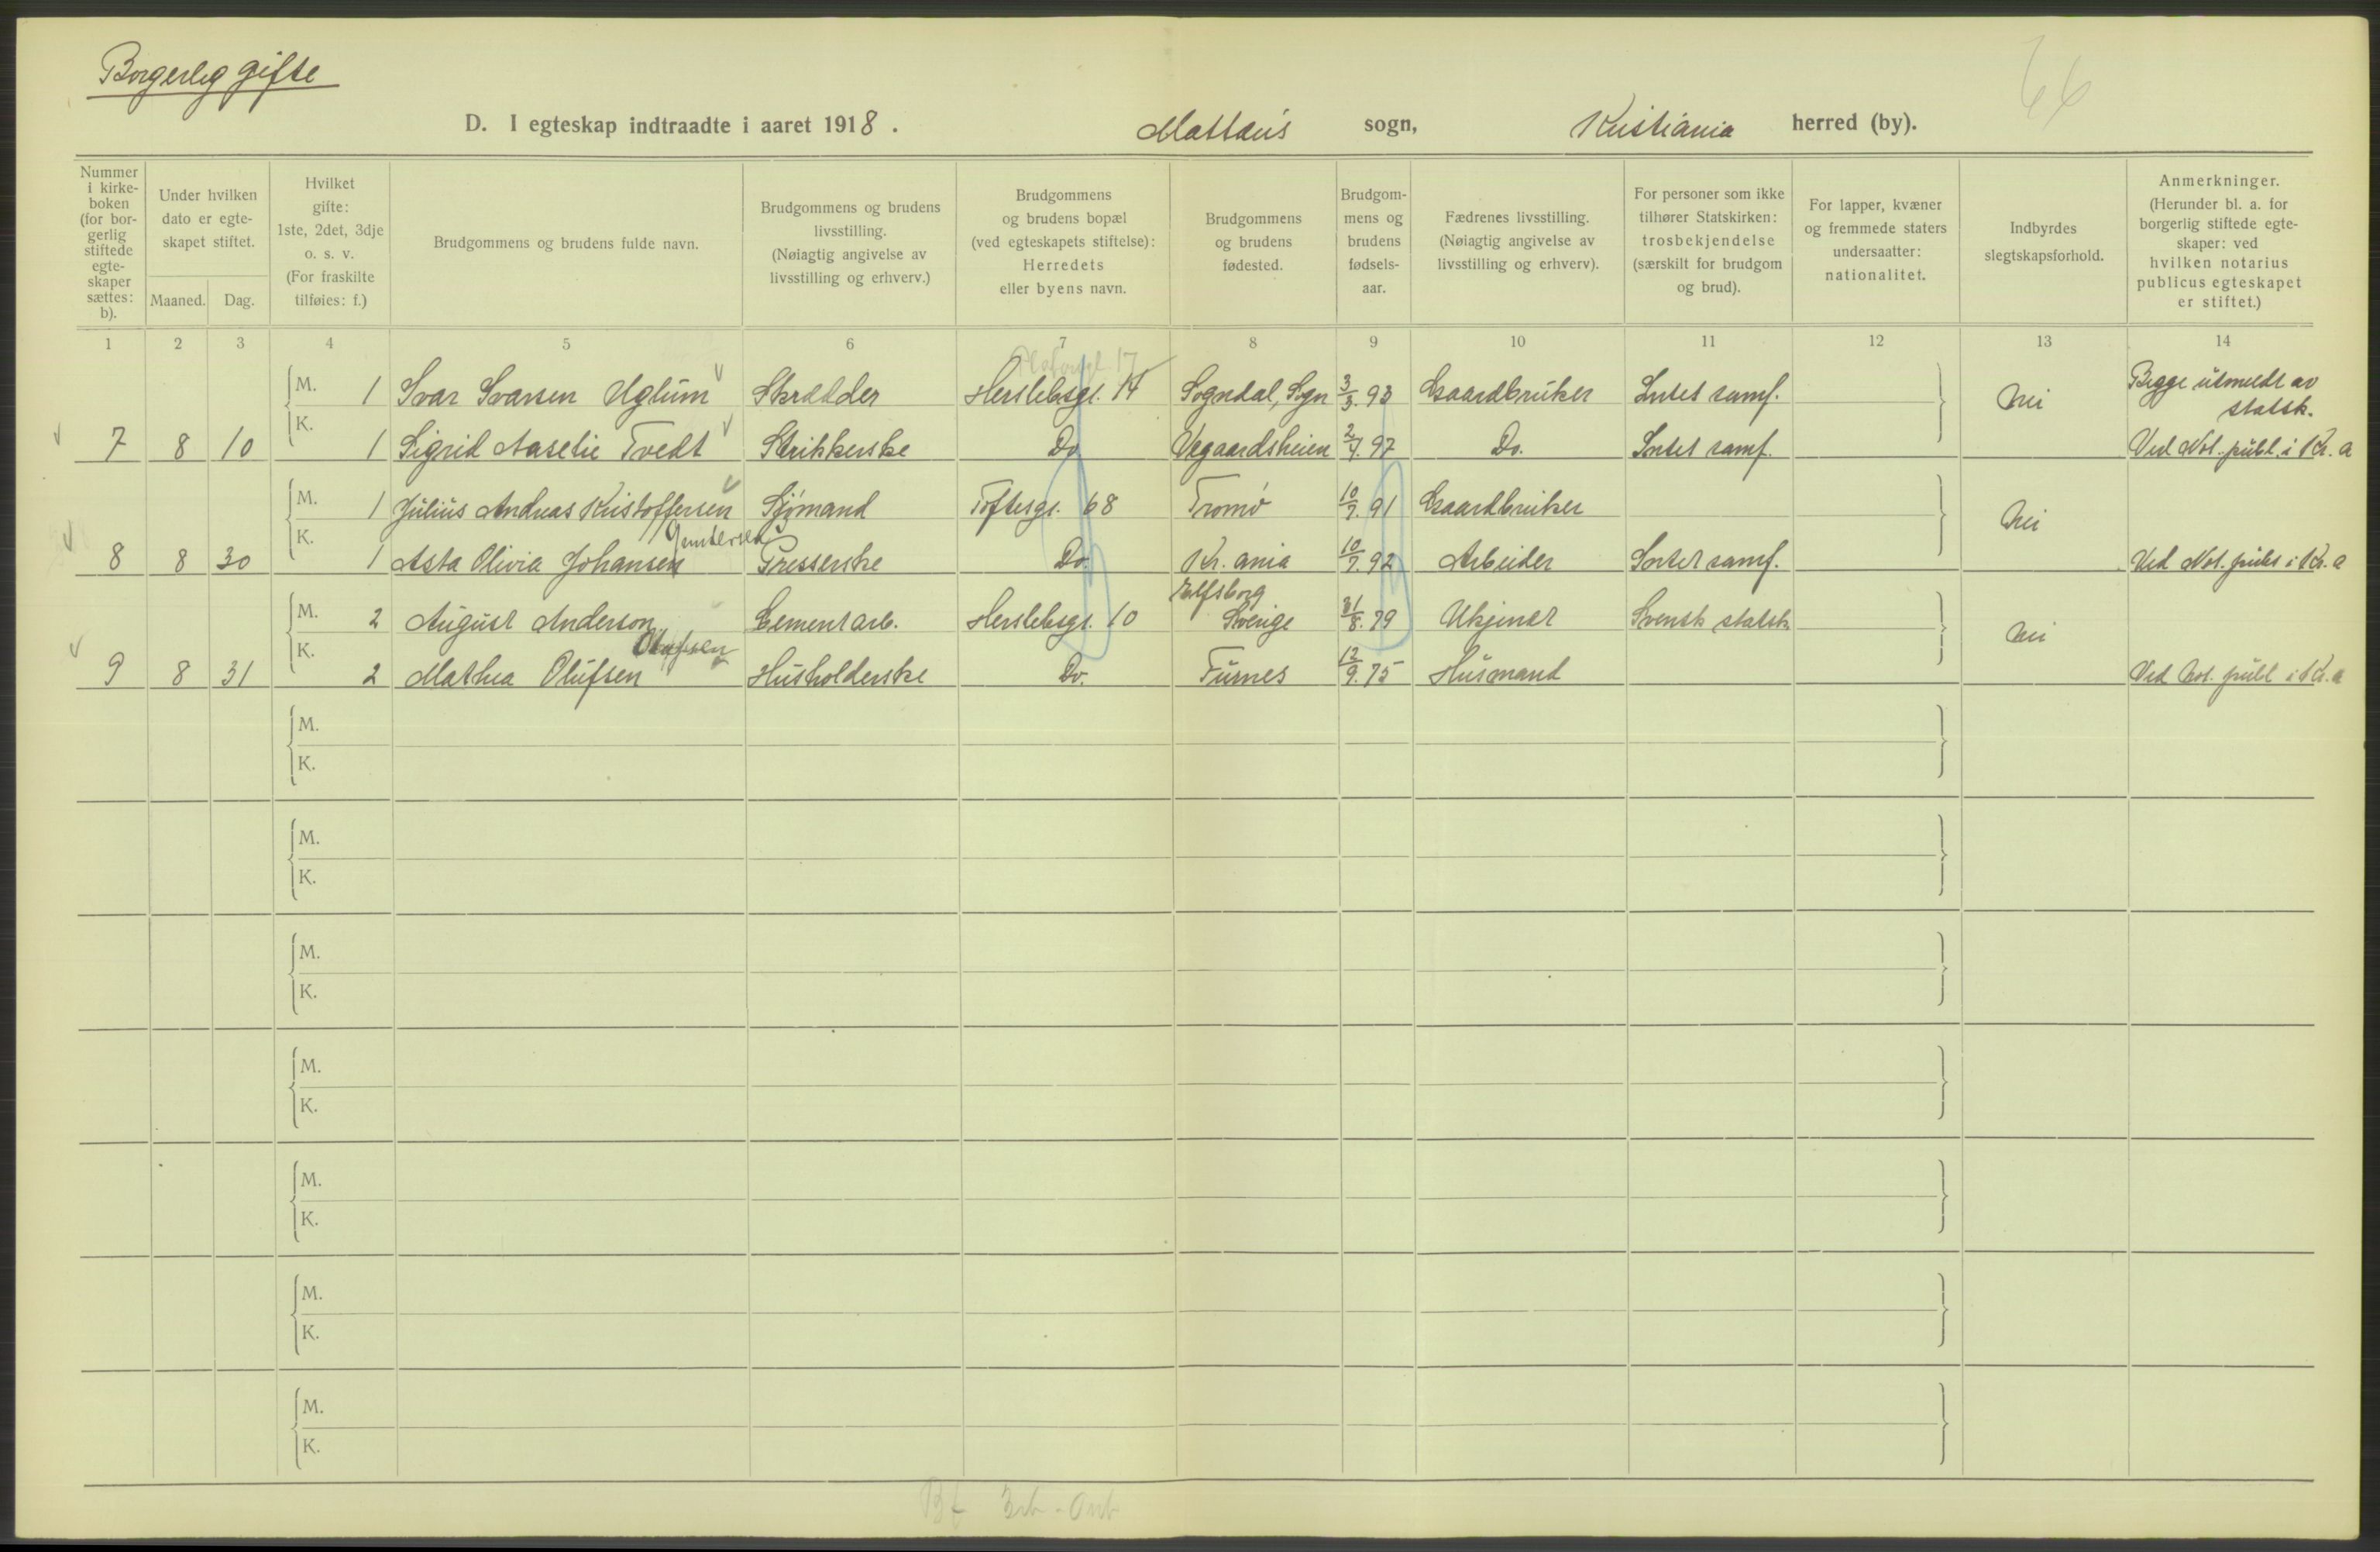 Borgerlig gifte
66
D. I egteskap indtraadte i aaret 1918. Mattæus sogn, Kristiania herred (by).
Nummer i kirkeboken (for borgerlig stiftede egteskaper sættes: b).
Under hvilken dato er egteskapet stiftet.
Maaned. Dag.
Hvilket gifte: 1ste, 2det, 3dje o. s. v. (For fraskilte tilføies: f.)
Brudgommens og brudens fulde navn.
Brudgommens og brudens livsstilling. (Nøiagtig angivelse av livsstilling og erhverv.)
Brudgommens og brudens bopæl (ved egteskapets stiftelse): Herredets eller byens navn.
Brudgommens og brudens fødested.
Brudgommens og brudens fødselsaar.
Fædrenes livsstilling. (Nøiagtig angivelse av livsstilling og erhverv).
For personer som ikke tilhører Statskirken: trosbekjendelse (særskilt for brudgom og brud).
For lapper, kvæner og fremmede staters undersaatter: nationalitet.
Indbyrdes slegtskapsforhold.
Anmerkninger. (Herunder bl. a. for borgerlig stiftede egteskaper: ved hvilken notarius publicus egteskapet er stiftet.)
1 2 3 4 5 6 7 8 9 10 11 12 13 14
M. 1 Ivar Ivarsen Uglum Skrædder Herslebsgt. 14 Sogndal, Sogn 3/3. 93 Gaardbruker Intet samf. Nei Begge utmeldt av statsk.
7 8 10 K. 1 Sigrid Aaselie Tvedt Strikkerske Do. Vegaardsheien 2/7. 97 Do. Intet samf. Ved Not. publ. i Kr.a
M. 1 Julius Andreas Kristoffersen Sjømand Toftesgt. 68 Tromø 10/7. 91 Gaardbruker Nei
Gundersen
8 8 30 K. 1 Asta Olivia Johansen Presserske Do. Kr. ania 10/7. 92 Arbeider Intet samf. Ved Not. publ i Kr. a
M. 2 August Anderson Cementarb. Herslebsgt. 10 Elfsborg Sverige 31/8. 79 Ukjendt Svensk statsk. Nei
Olufsen
9 8 31 K. 2 Mathea Olufsen Husholderske Do. Furnes 12/9. 75 Husmand Ved Not. publ i Kr.a
M.
K.
M.
K.
M.
K.
M.
K.
M.
K.
M.
K.
M.
K.